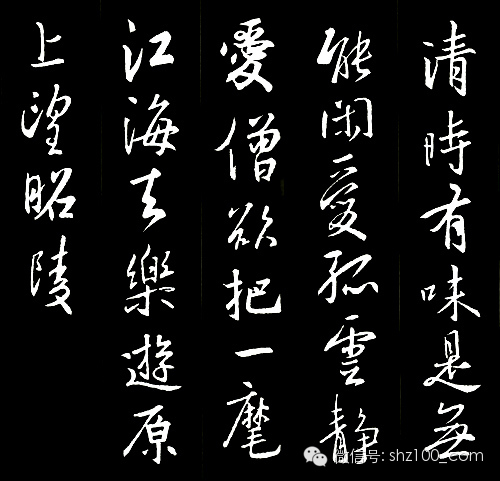 清時有味是無
能閑愛孤雲静
愛僧欲把一麾
江海去樂遊原
上望昭陵
微信号: shz100_com